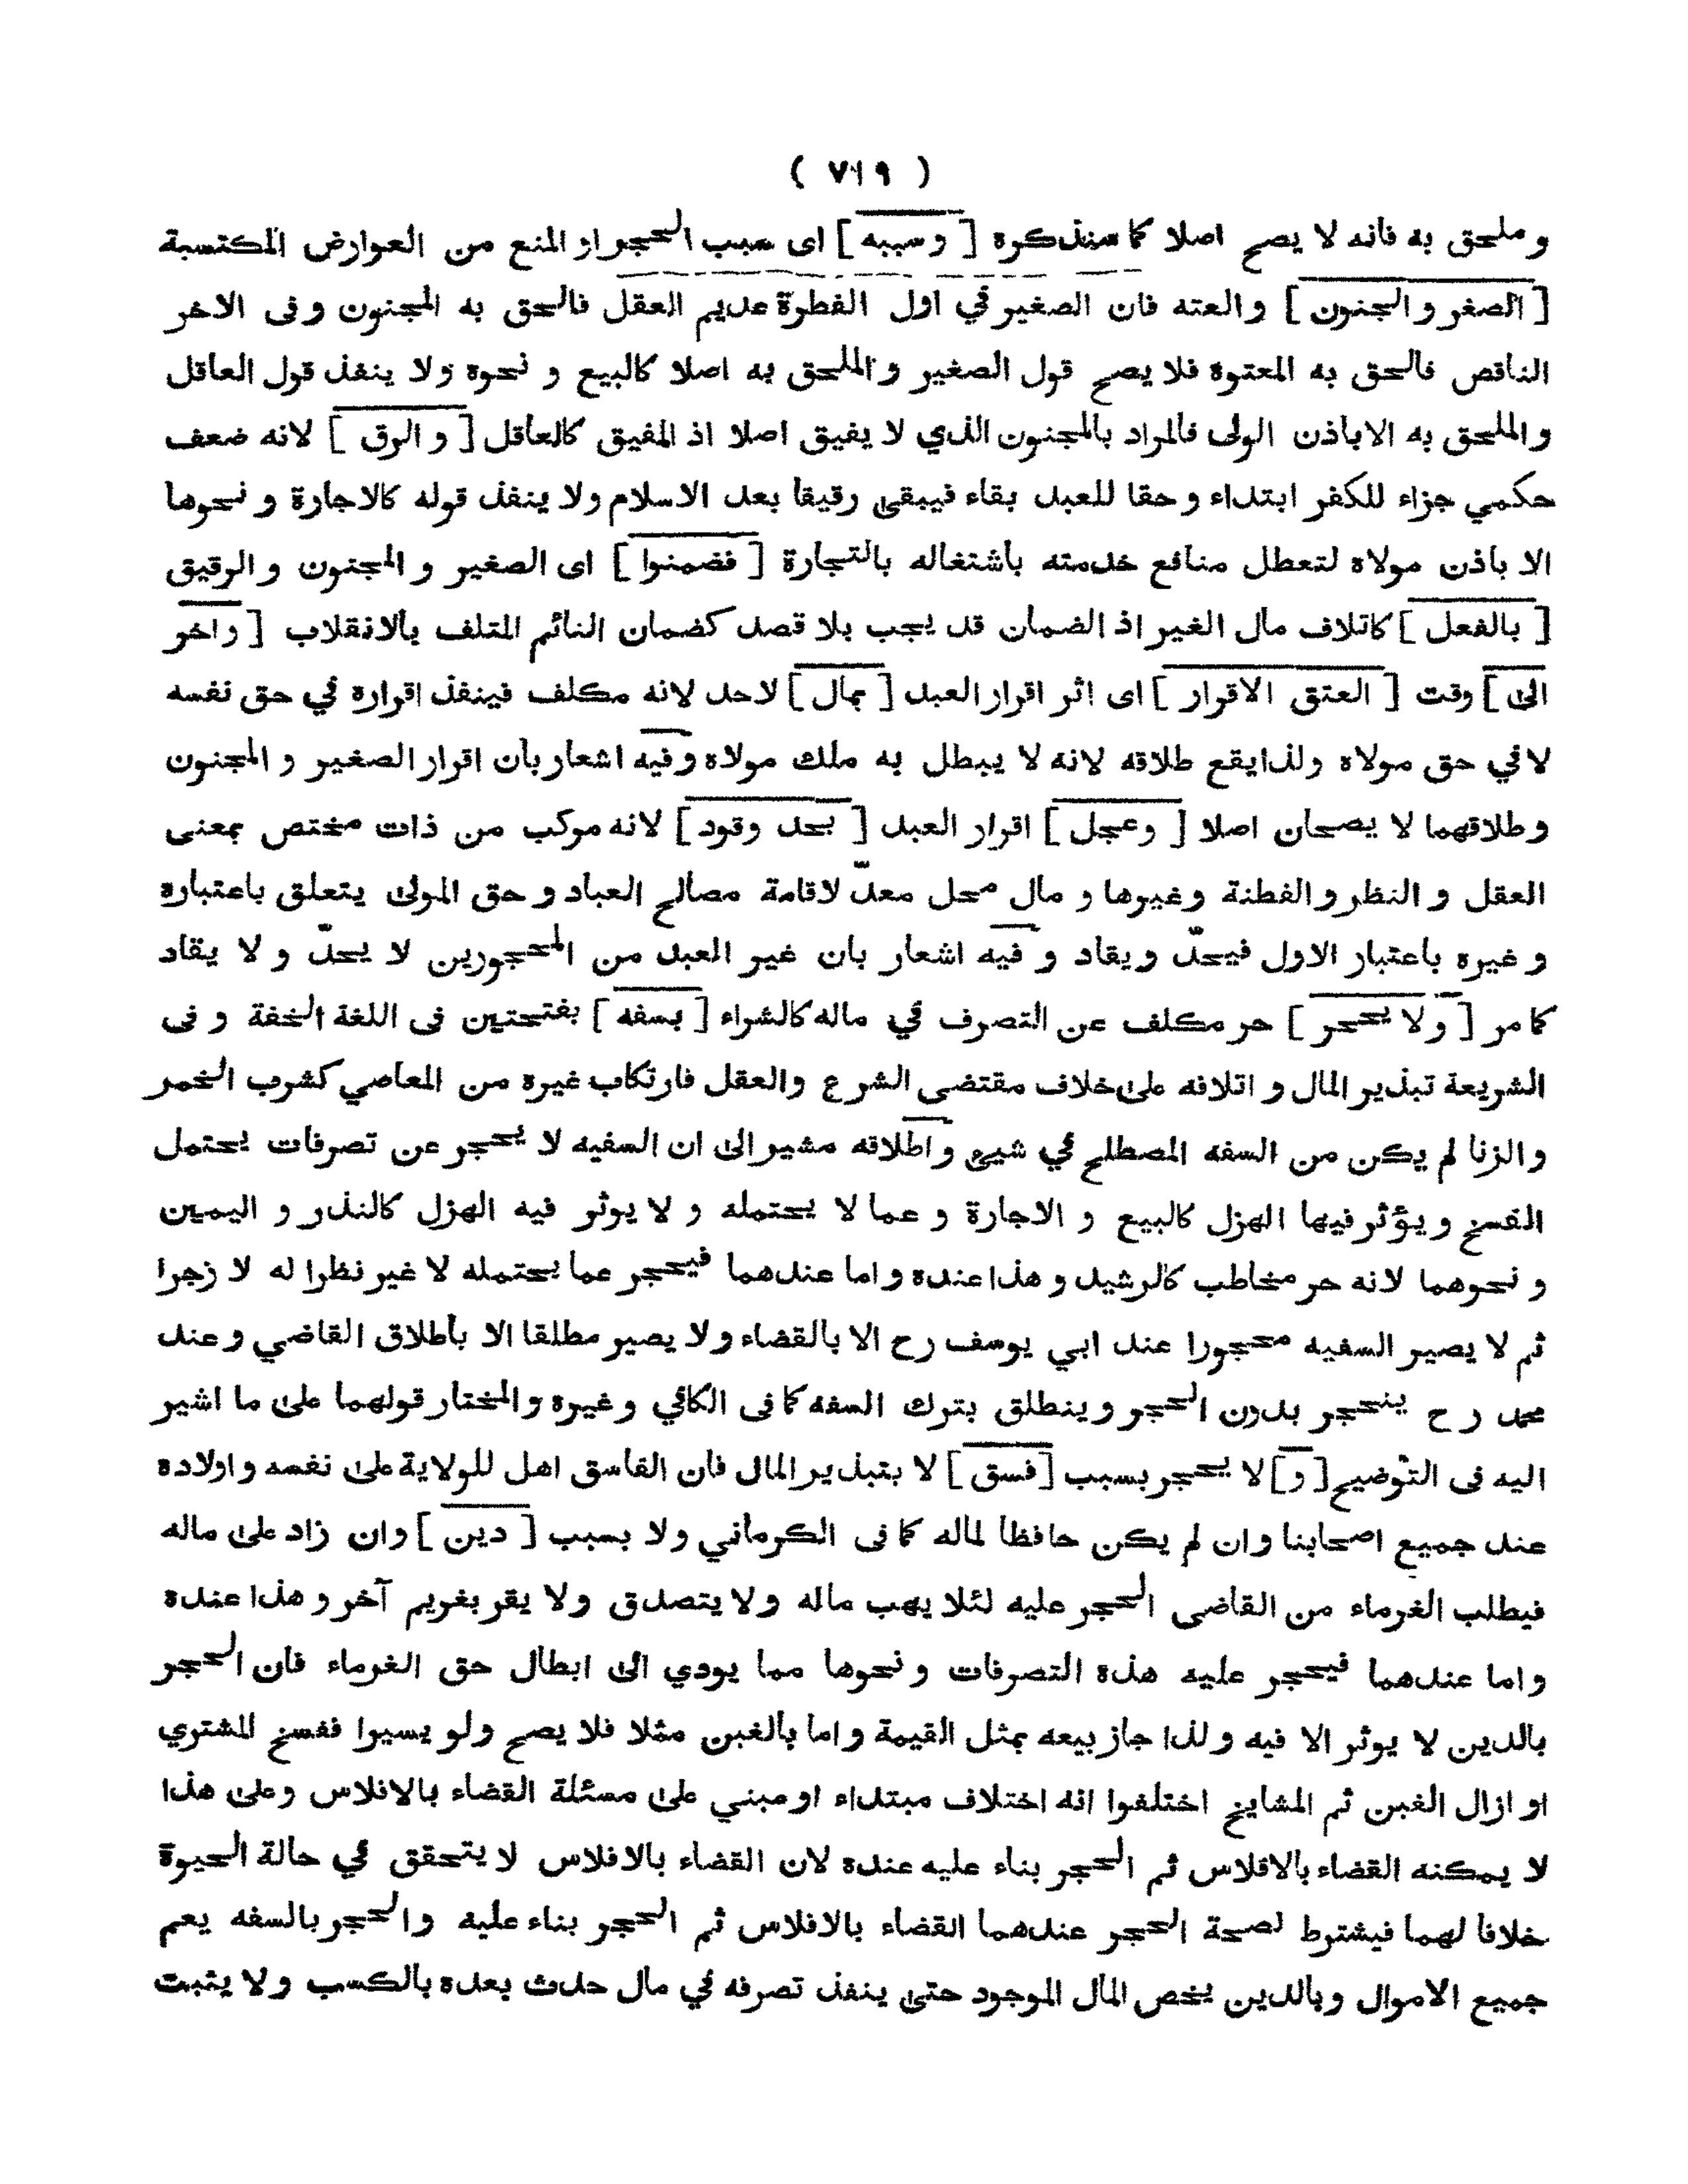 ( ٧١٩ )
و ملحق به فانه لا يصح اصلا كما سنذكره [ و سببه ] اى سبب الحجر او المنع من العوارض المكتسبة
[ الصغر و الجنون ] و العته فان الصغير في اول الفطرة عديم العقل فالحق به المجنون و فى الاخر
الناقص فالحق به المعتوه فلا يصح قول الصغير و الملحق به اصلا كالبيع و نحوه ولا ينفذ قول العاقل
و الملحق به الا باذن الولى فالمراد بالمجنون الذي لا يفيق اصلا اذ المفيق كالعاقل [ و الرق ] لانه ضعف
حكمي جزاء للكفر ابتداء و حقا للعبد بقاء فيبقى رقيقا بعد الاسلام ولا ينفذ قوله كالاجارة و نحوها
الا باذن مولاه لتعطل منافع خدمته باشتغاله بالتجارة [ فضمنوا ] اى الصغير و المجنون و الرقيق
[ بالفعل ] كاتلاف مال الغير اذ الضمان قد يجب بلا قصد كضمان النائم المتلف بالانقلاب [ و اخر
الى ] وقت [ العتق الاقرار ] اى اثر اقرار العبد [ بمال ] لاحد لانه مكلف فينفذ اقراره في حق نفسه
لا في حق مولاه ولذا يقع طلاقه لانه لا يبطل به ملك مولاه و فيه اشعار بان اقرار الصغير و المجنون
و طلاقهما لا يصحان اصلا [ و عجل ] اقرار العبد [ بحد وقود ] لانه مركب من ذات مختص بمعنى
العقل و النظر و الفطنة و غيرها و مال محل معدّ لاقامة مصالح العباد و حق المولى يتعلق باعتباره
و غيره باعتبار الاول فيحدّ و يقاد و فيه اشعار بان غير العبد من المحجورين لا يحدّ و لا يقاد
كما مر [ و لا يحجر ] حر مكلف عن التصرف في ماله كالشراء [ بسفه ] بفتحتين فى اللغة الخفة و فى
الشريعة تبذير المال و اتلافه على خلاف مقتضى الشرع والعقل فارتكاب غيره من المعاصي كشرب الخمر
و الزنا لم يكن من السفه المصطلح في شيئ و اطلاقه مشير الى ان السفيه لا يحجر عن تصرفات يحتمل
الفسخ و يؤثر فيها الهزل كالبيع و الاجارة و عما لا يحتمله و لا يوثر فيه الهزل كالنذر و اليمين
و نحوهما لانه حر مخاطب كالرشيد و هذا عنده و اما عندهما فيحجر عما يحتمله لا غير نظرا له لا زجرا
ثم لا يصير السفيه محجورا عند ابي يوسف رح الا بالقضاء ولا يصير مطلقا الا باطلاق القاضي و عند
محمد رح ينحجر بدون الحجر و ينطلق بترك السفه كما فى الكافي و غيره والمختار قولهما على ما اشير
اليه فى التوضيح [ و ] لا يحجر بسبب [ فسق ] لا بتبذير المال فان الفاسق اهل للولاية على نفسه و اولاده
عند جميع اصحابنا و ان لم يكن حافظا لماله كما فى الكرماني ولا بسبب [ دين ] وان زاد على ماله
فيطلب الغرماء من القاضى الحجر عليه لئلا يهب ماله ولا يتصدق ولا يقر بغريم آخر و هذا عنده
و اما عندهما فيحجر عليه هذه التصرفات و نحوها مما يودي الى ابطال حق الغرماء فان الحجر
بالدين لا يوثر الا فيه و لذا جاز بيعه بمثل القيمة و اما بالغبن مثلا فلا يصح ولو يسيرا ففسخ المشتري
او ازال الغبن ثم المشايخ اختلفوا انه اختلاف مبتداء او مبني على مسئلة القضاء بالافلاس وعلى هذا
لا يمكنه القضاء بالافلاس ثم الحجر بناء عليه عنده لان القضاء بالافلاس لا يتحقق في حالة الحيوة
خلافا لهما فيشترط لصحة الحجر عندهما القضاء بالافلاس ثم الحجر بناء عليه والحجر بالسفه يعم
جميع الاموال و بالدين يخص المال الموجود حتى ينفذ تصرفه في مال حدث بعده بالكسب ولا يثبت